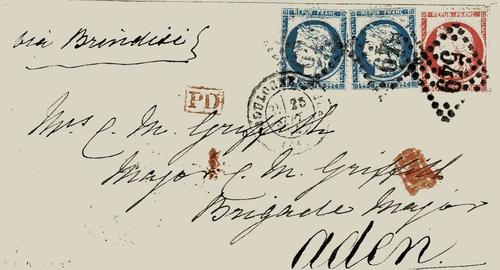 REPUB. FRANC. REPUB. FRANC. REPUB. FRANC.
via Brindisi
649
649
PD
25
Mrs C. M. Griffith
Major C. M. Griffith
Brigade Major
Aden.